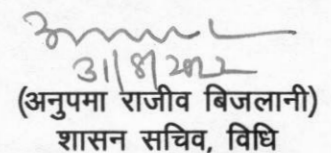 31/8/2022
(अनुपमा राजीव बिजलानी)
शासन सचिव, विधि